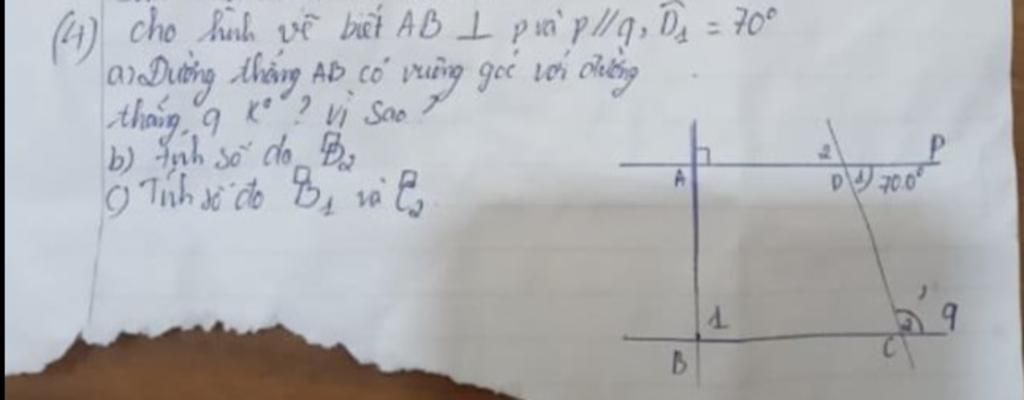 (4) Cho hình vẽ biết AB ⊥ p và p // q, D̂1 = 70°
a) Đường thẳng AB có vuông góc với đường
thẳng q K° ? Vì sao ?
b) Tính số đo D̂2
c) Tính số đo B̂1 và Ĉ2
2 P
A D 1) 70.0°
1 q
2
B C